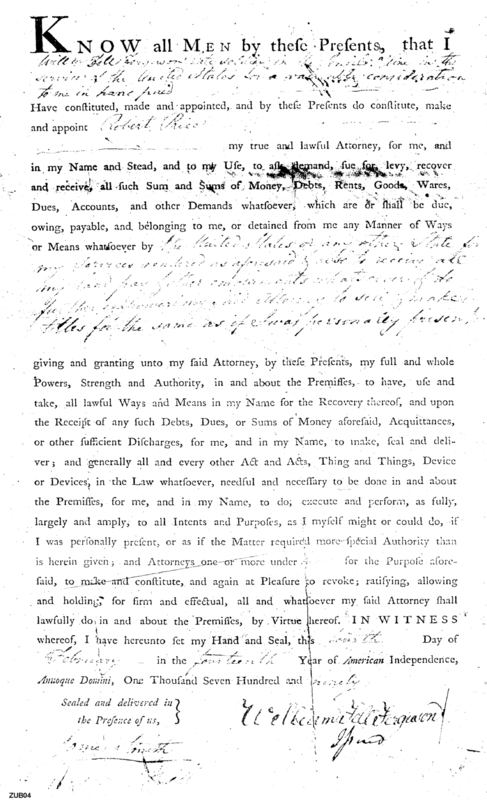 KNOW all MEN by theſe Preſents, that I
ſervice of the United States for a conſideration
to me in hand
Have conſtituted, made and appointed, and by theſe Preſents do conſtitute, make
and appoint Robert
my true and lawful Attorney, for me, and
in my Name and Stead, and to my Uſe, to aſk, demand, ſue for, levy, recover
and receive, all ſuch Sum and Sums of Money, Debts, Rents, Goods, Wares,
Dues, Accounts, and other Demands whatſoever, which are or ſhall be due,
owing, payable, and belonging to me, or detained from me any Manner of Ways
or Means whatſoever by the United States or any other State for
my Services rendered as aforesaid & also to receive all
my pay & other emoluments whatsoever & I do
further my said Attorney to sell & make
titles for the same as if I was personally present
giving and granting unto my ſaid Attorney, by theſe Preſents, my full and whole
Powers, Strength and Authority, in and about the Premiſſes, to have, uſe and
take, all lawful Ways and Means in my Name for the Recovery thereof, and upon
the Receipt of any ſuch Debts, Dues, or Sums of Money aforeſaid, Acquittances,
or other ſufficient Diſcharges, for me, and in my Name, to make, ſeal and deli-
ver; and generally all and every other Act and Acts, Thing and Things, Device
or Devices, in the Law whatſoever, needful and neceſſary to be done in and about
the Premiſſes, for me, and in my Name, to do; execute and perform, as fully,
largely and amply, to all Intents and Purpoſes, as I myſelf might or could do, if
I was perſonally preſent, or as if the Matter required more ſpecial Authority than
is herein given; and Attorneys one or more under for the Purpoſe afore-
ſaid, to make and conſtitute, and again at Pleaſure to revoke; ratifying, allowing
and holding, for firm and effectual, all and whatſoever my ſaid Attorney ſhall
lawfully do in and about the Premiſſes, by Virtue hereof. IN WITNESS
whereof, I have hereunto ſet my Hand and Seal, this fourth Day of
February in the fourteenth Year of American Independence,
Annoque Domini, One Thouſand Seven Hundred and ninety
Sealed and delivered in
the Preſence of us,
Ferguson
ZUB04